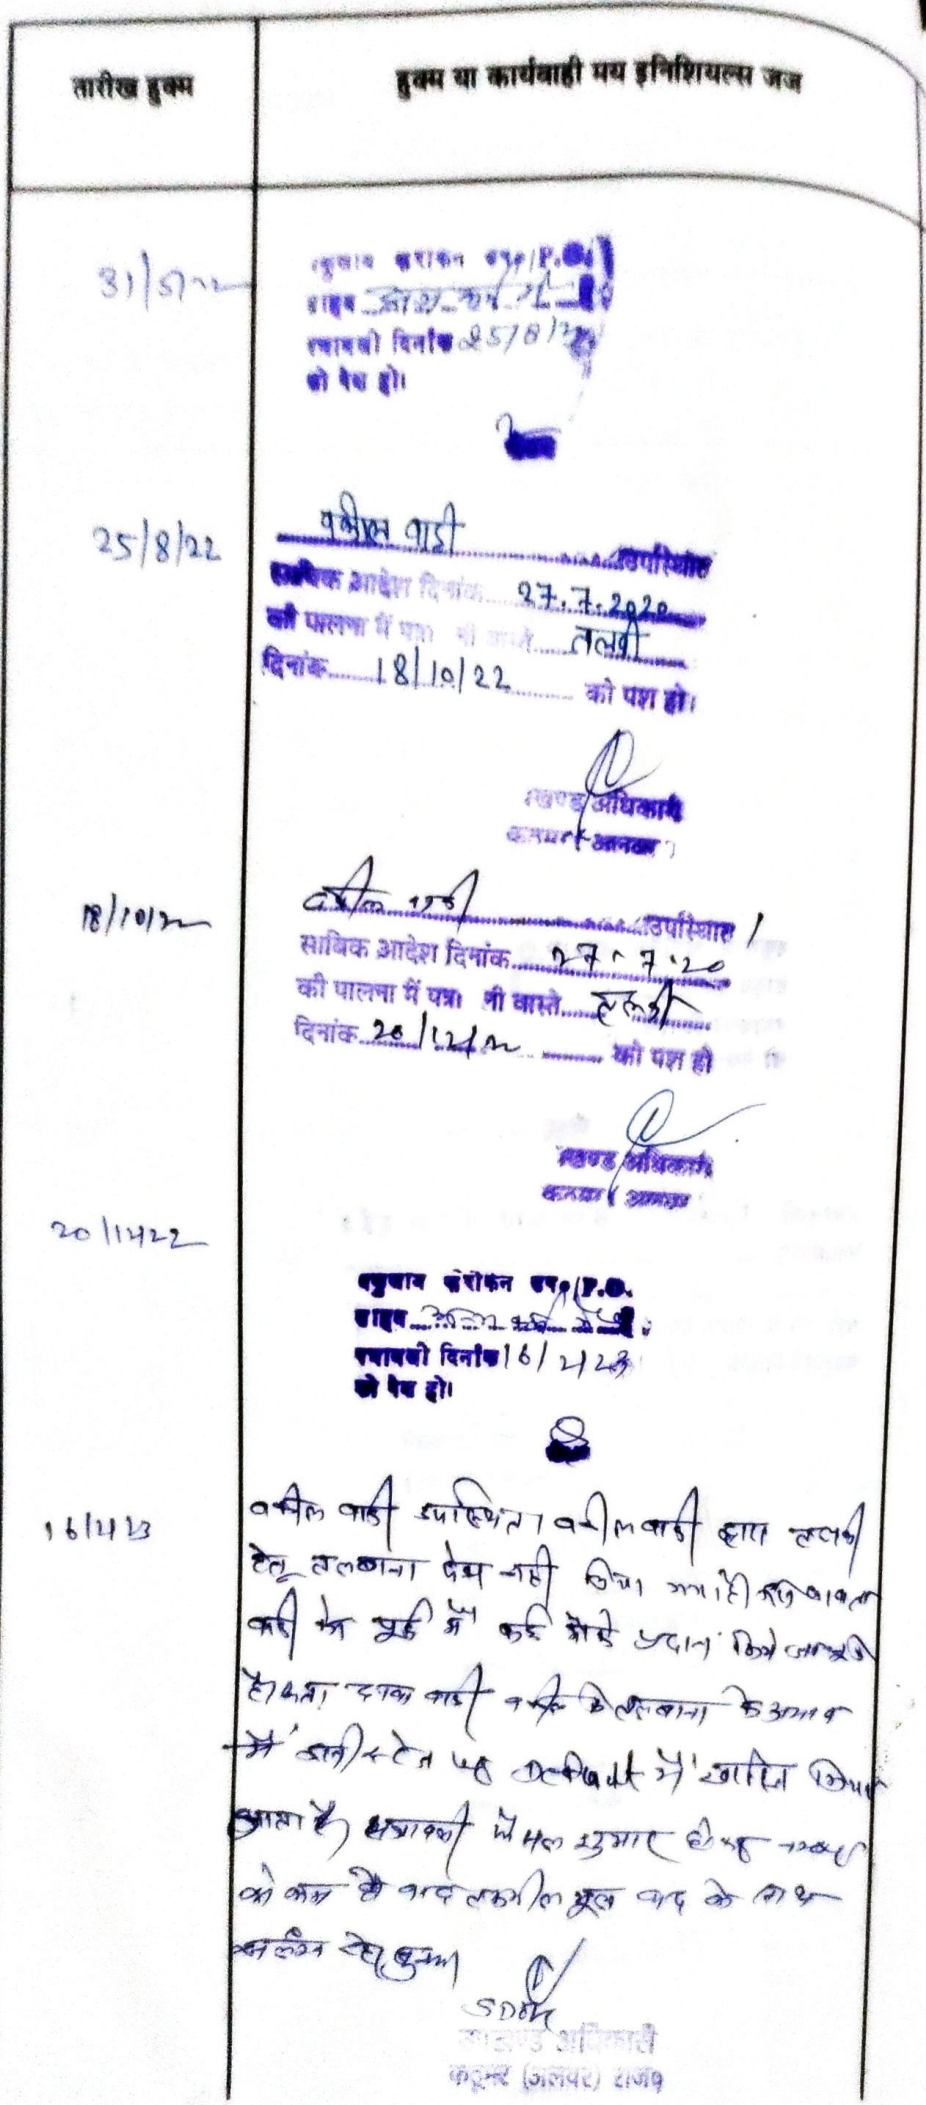 तारीख हुक्म
हुक्म या कार्यवाही मय इनिशियल्स जज
31/5/22
P.O.
साहब
पत्रावली दिनांक 25/8/22
को पेश हो।
25/8/22
वकील वादी उपस्थित
साबिक आदेश दिनांक 27.7.2020
की पालना में पत्रा ली वास्ते तलबी
दिनांक 18/10/22 को पेश हो।
खण्ड अधिकारी
18/10/22
वकील वादी उपस्थित
साबिक आदेश दिनांक 27.7.20
की पालना में पत्रा ली वास्ते तलबी
दिनांक 20/12/22 को पेश हो
खण्ड अधिकारी
20/12/22
P.O.
साहब
पत्रावली दिनांक 16/2/23
को पेश हो।
16/2/23
वकील वादी उपस्थित। वकील वादी द्वारा तलबी
हेतु तलबाना पेश नही किया गया है।
वादी को पूर्व में कई मौके प्रदान किये जा चुके
है। अतः दावा वादी तलबाना के अभाव
में इसी स्टेज पर Default में खारिज किया
जाता है। पत्रावली फैसल शुमार होकर नम्बर
से कम हो बाद तकमील मूल वाद के साथ
संलग्न रहे।
SDM
खण्ड अधिकारी
कठूमर (अलवर) राज०